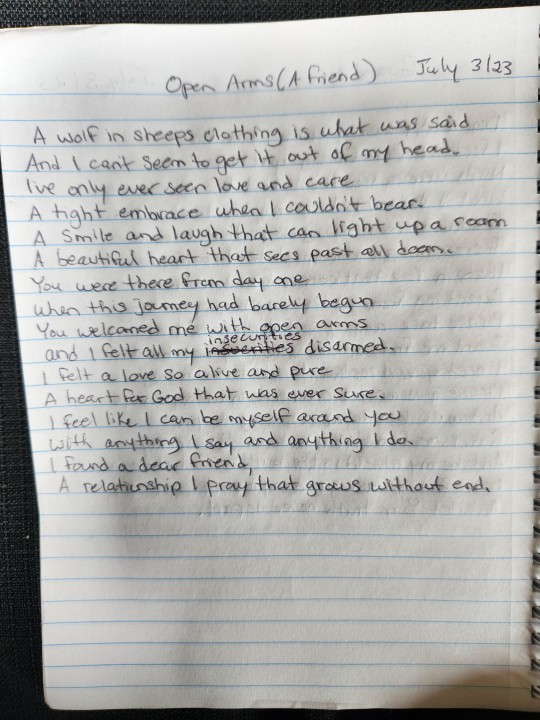 Open Arms (A friend) July 3/23
A wolf in sheeps clothing is what was said
And I can't seem to get it out of my head.
I've only ever seen love and care
A tight embrace when I couldn't bear.
A smile and laugh that can light up a room
A beautiful heart that sees past all doom.
You were there from day one
When this journey had barely begun
You welcomed me with open arms
insecurities
and I felt all my insuerities disarmed.
I felt a love so alive and pure
A heart for God that was ever sure.
I feel like I can be myself around you
With anything I say and anything I do.
I found a dear friend,
A relationship I pray that grows without end.